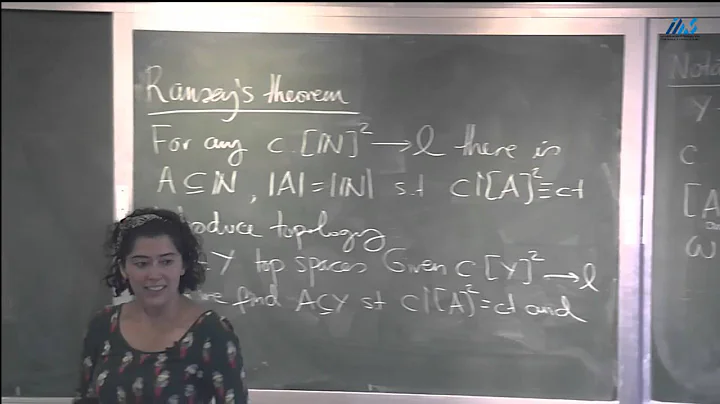 Ramsey's theorem
For any c: [ℕ]² → l there is
A ⊆ ℕ, |A| = |ℕ| s.t. c↾[A]² ≡ ct
oduce topology
Y top spaces Given c [Y]² → l
we find A ⊆ Y st c↾[A]² ≡ ct and
Nota
Y
c
[A
ω